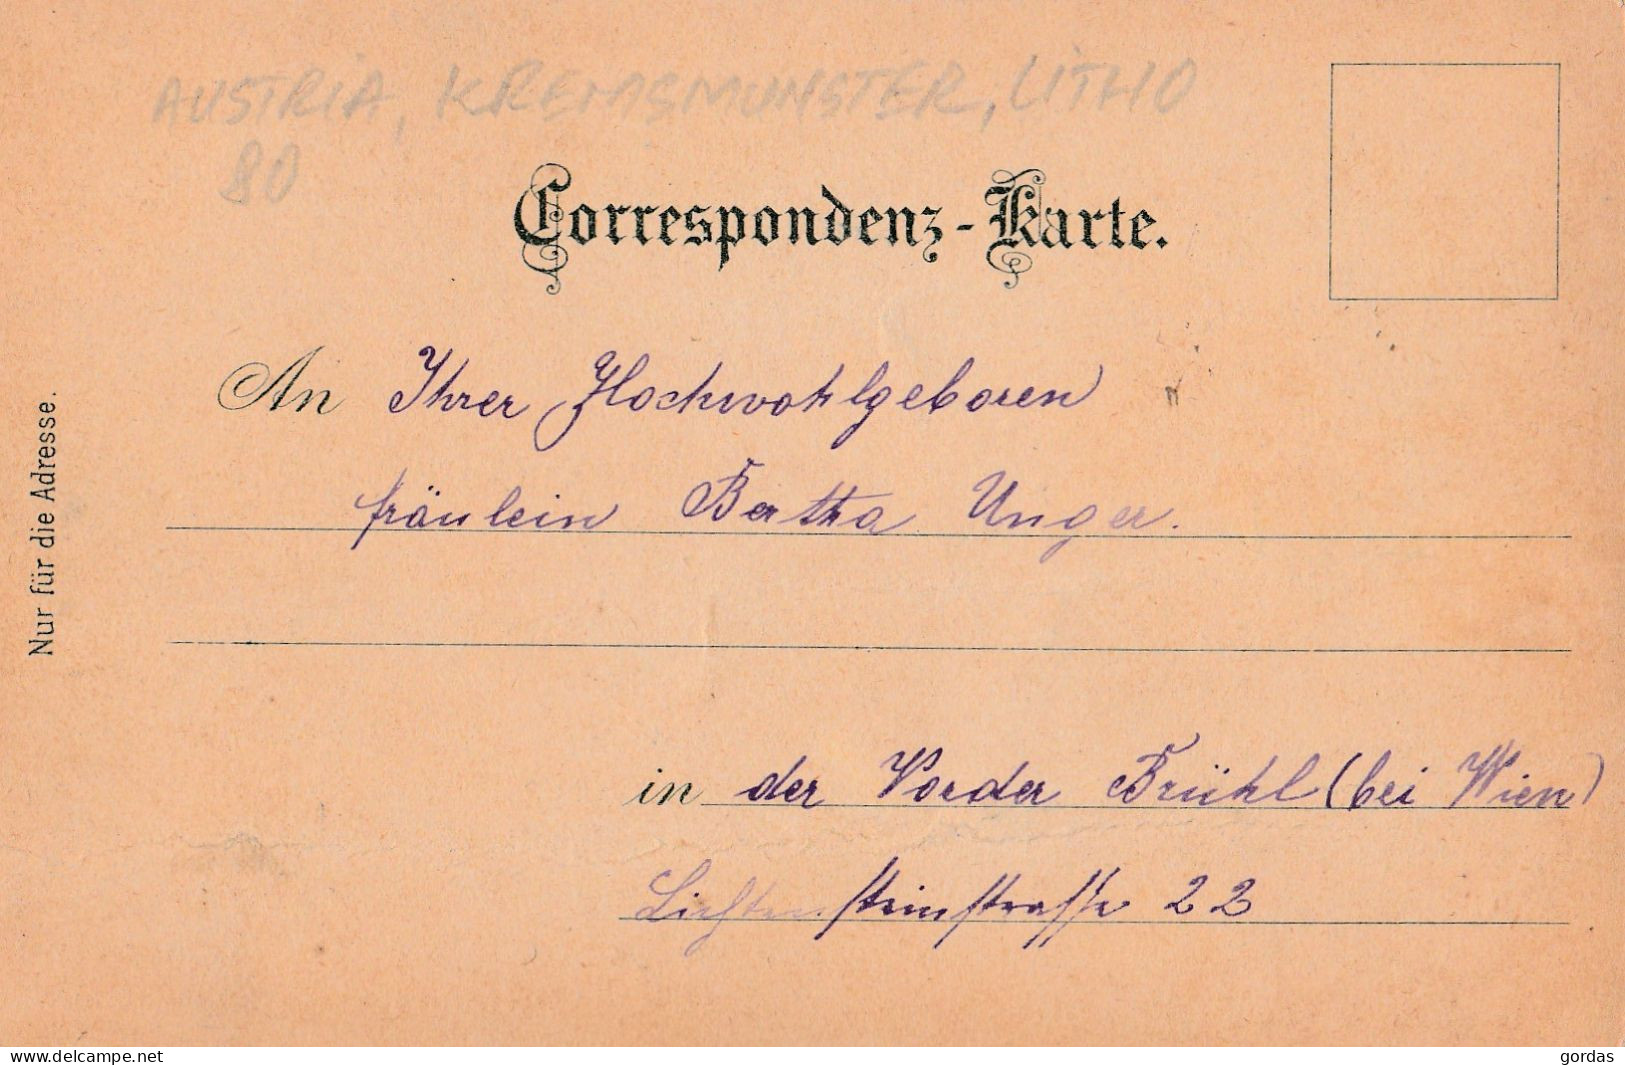 AUSTRIA, KREMSMUNSTER, LITHO
80
Correspondenz-Karte.
An Ihrer Hochwohlgeboren
fräulein Bertha Unger.
in der Vorder Brühl (bei Wien)
Lichtensteinstrasse 22
Nur für die Adresse.
www.delcampe.net
gordas